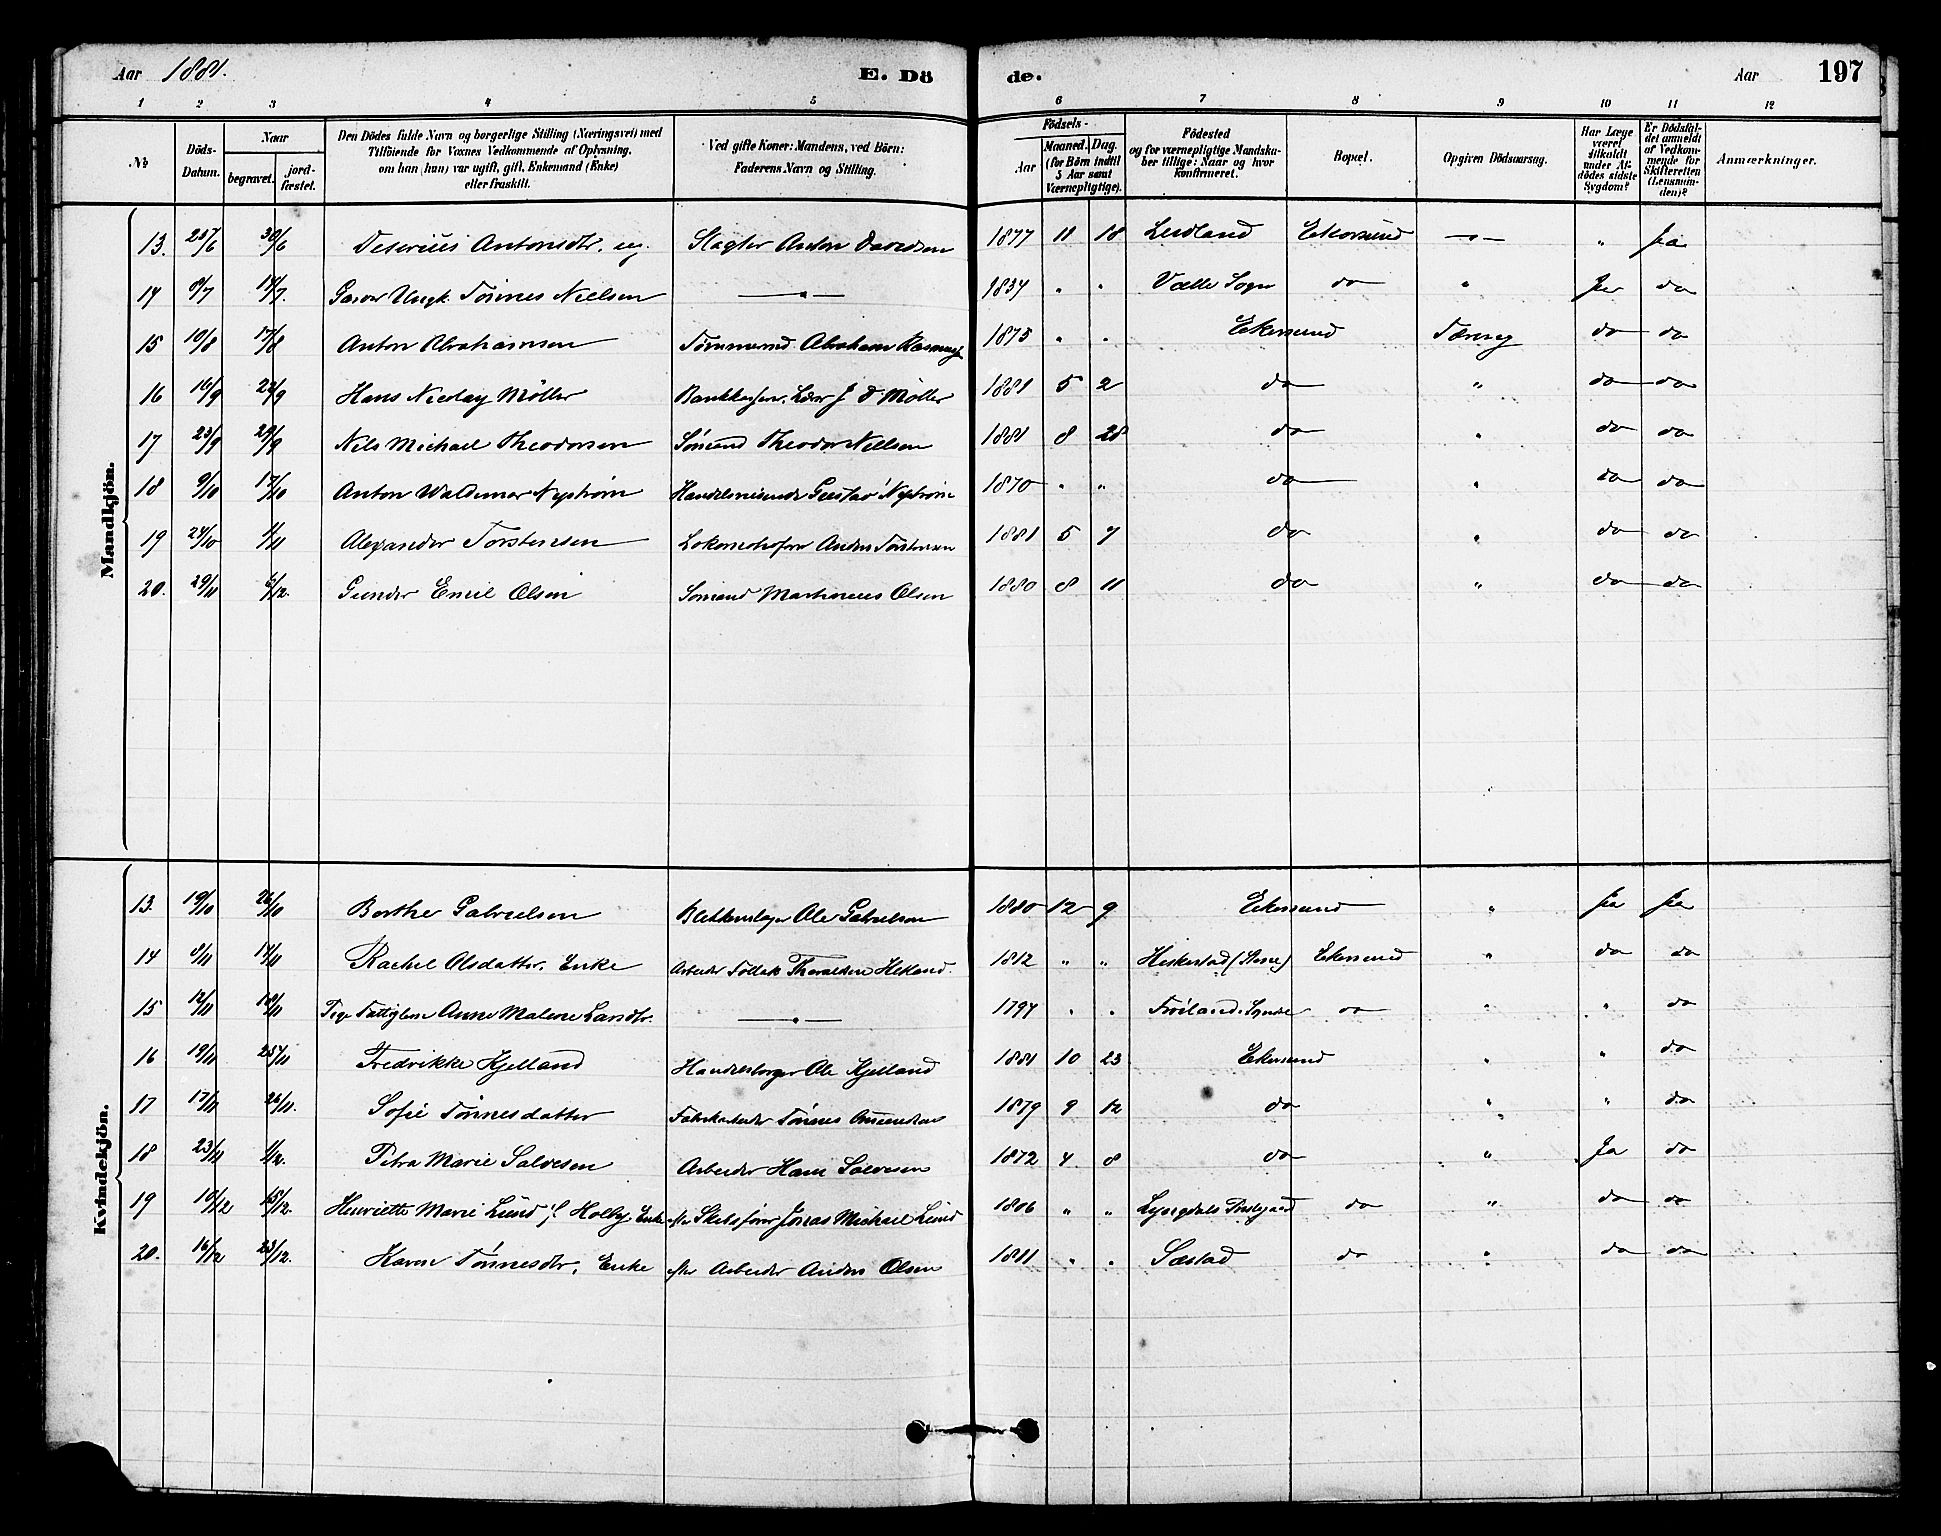 Aar 1881. E. Dö de. Aar 197
1 2 3 4 5 6 7 8 9 10 11 12
No
Döds-Datum.
Naar
begravet. jord-fæstet.
Den Dödes fulde Navn og borgerlige Stilling (Næringsvei) med
Tilföiende for Voxnes Vedkommende af Oplysning,
om han (hun) var ugift, gift, Enkemand (Enke)
eller fraskilt.
Ved gifte Koner: Mandens, ved Börn:
Faderens Navn og Stilling.
Födsels-
Aar Maaned. Dag.
(for Börn indtil
5 Aar samt
Værnepligtige).
Födested
og for værnepligtige Mandska-
ber tillige: Naar og hvor
konfirmeret.
Bopæl.
Opgiven Dödsaarsag.
Har Læge
været
tilkaldt
under Af-
dödes sidste
Sygdom?
Er Dödsfal-
det anmeldt
af Vedkom-
mende for
Skifteretten
(Lensman-
den)?
Anmærkninger.
Mandkjön.
13. 25/6 30/6 Antonsdtr. ug. Slagter Anton Davidsen 1877 11 18 Ekersund — " — " Ja
14 9/7 14/7. Tönnes Nielsen — " — 1834 " " Sogn do " Ja do
15 10/8 17/8 Anton Abrahamsen Tömmermd. Abraham 1875 " " Ekersund do do
16 16/9 22/9 Hans Nicolay Möller J D Möller 1881 5 2 do " do do
17 23/9 29/9 Nils Michael Theodorsen Sömand Theodor Nielsen 1881 8 28 do " do do
18 9/10 17/10 Anton Waldemar Nyström Handelsreisende Gustav Nyström 1870 " " do " do do
19 24/10 1/11 Alexander Torstensen Lokomotivförer Anders Torstensen 1881 5 7 do " do do
20. 29/11 6/12. Gunder Emil Olsen Sömand Martinius Olsen 1880 8 11 do " do do
Kvindekjön.
13. 19/10 26/10 Berthe Gabrielsen Blikkenslager Ole Gabrielsen 1880 12 9 Ekersund " Ja Ja
14 8/11 14/11 Rachel Olsdatter, Enke Arbeider Tollak Hetland. 1812 " " Heskestad Ekersund " do do
15 12/11 18/11 Anne Malene Larsdtr. — " — 1794 " " do " " do
16 19/11 25/11 Fredrikke Kjelland Handelsborger Ole Kjelland 1881 10 23 Ekersund " " do
17 17/11 26/11. Sofie Tönnesdatter Fabrikarbeider Tönnes 1879 9 12 do " " do
18 23/11 1/12. Petra Marie Salvesen Arbeider Hans Salvesen 1872 4 8 do " Ja do
19 10/12 15/12. Henriette Marie Lund f. Holby Enke efter Skibsförer Jonas Michael Lund 1806 " " Lyngdals Præstegjeld do " do do
20. 16/12 23/12. Karen Tönnesdtr, Enke efter Arbeider Anders Olsen 1811 " " Sæstad do " do do